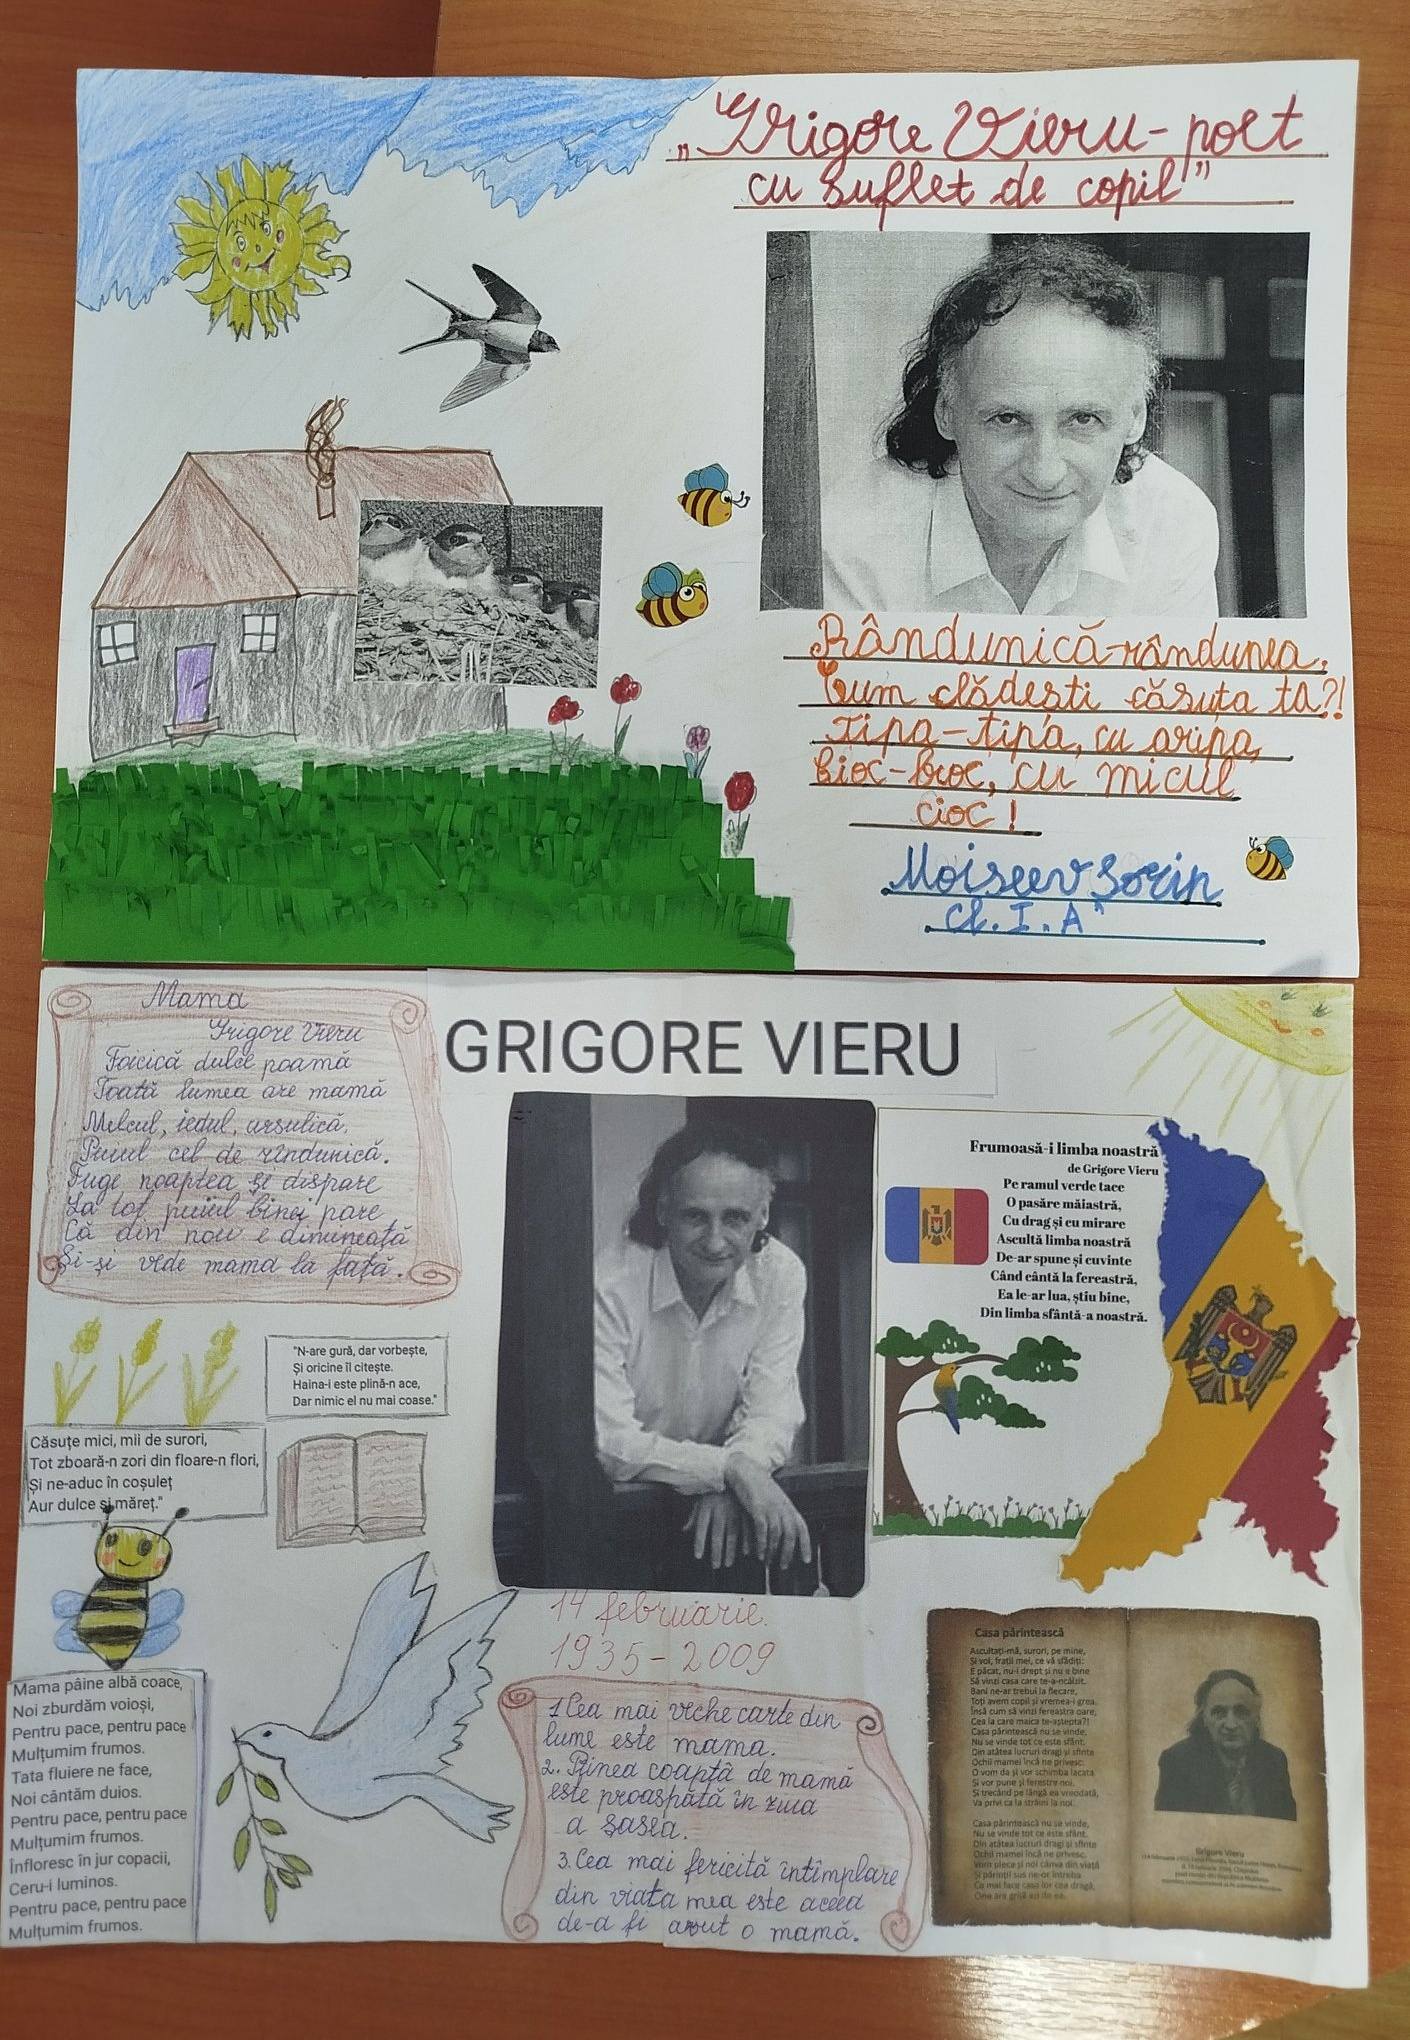 „Grigore Vieru - poet
cu suflet de copil"
Rândunică-rândunea,
Cum clădești căsuța ta?!
Tipa-tipa, cu aripa,
Cioc-boc, cu micul
cioc!
Moiseev Sorin
Cl. I „A"
Mama
Grigore Vieru
Foicică dulce poamă
Toată lumea are mamă
Melcul, iedul, ursulică,
Puiul cel de rîndunică.
Fuge noaptea și dispare
La tot puiul bine-i pare
Că din nou e dimineață
Și-și vede mama la față.
GRIGORE VIERU
Frumoasă-i limba noastră
de Grigore Vieru
Pe ramul verde tace
O pasăre măiastră,
Cu drag și cu mirare
Ascultă limba noastră
De-ar spune și cuvinte
Când cântă la fereastră,
Ea le-ar lua, știu bine,
Din limba sfântă-a noastră.
"N-are gură, dar vorbește,
Și oricine îl citește.
Haina-i este plină-n ace,
Dar nimic el nu mai coase."
Căsuțe mici, mii de surori,
Tot zboară-n zori din floare-n flori,
Și ne-aduc în coșuleț
Aur dulce și măreț."
14 februarie.
1935-2009
Mama pâine albă coace,
Noi zburdăm voioși,
Pentru pace, pentru pace
Mulțumim frumos.
Tata fluiere ne face,
Noi cântăm duios.
Pentru pace, pentru pace
Mulțumim frumos.
Înfloresc în jur copacii,
Ceru-i luminos.
Pentru pace, pentru pace
Mulțumim frumos.
1. Cea mai veche carte din
lume este mama.
2. Pîinea coaptă de mamă
este proaspătă în ziua
a șasea.
3. Cea mai fericită întîmplare
din viața mea este aceea
de-a fi avut o mamă.
Casa părintească
Ascultați-mă, surori, pe mine,
Și voi, frații mei, ce vă sfădiți:
E păcat, nu-i drept și nu e bine
Să vinzi casa care te-a-ncălzit.
Bani ne-ar trebui la fiecare,
Toți avem copii și vremea-i grea.
Însă cum să vinzi fereastra oare,
Cea la care maica te-aștepta?!
Casa părintească nu se vinde,
Nu se vinde tot ce este sfânt.
Din atâtea lucruri dragi și sfinte
Ochii mamei încă ne privesc.
O vom da și vor schimba lacata
Și vor pune și ferestre noi.
Și trecând pe lângă ea vreodată,
Va privi ca la străini la noi.
Casa părintească nu se vinde,
Nu se vinde tot ce este sfânt.
Din atâtea lucruri dragi și sfinte
Ochii mamei încă ne privesc.
Vom pleca și noi cândva din viață
Și părinții sus ne-or întreba
Ce mai face casa lor cea dragă,
Grigore Vieru